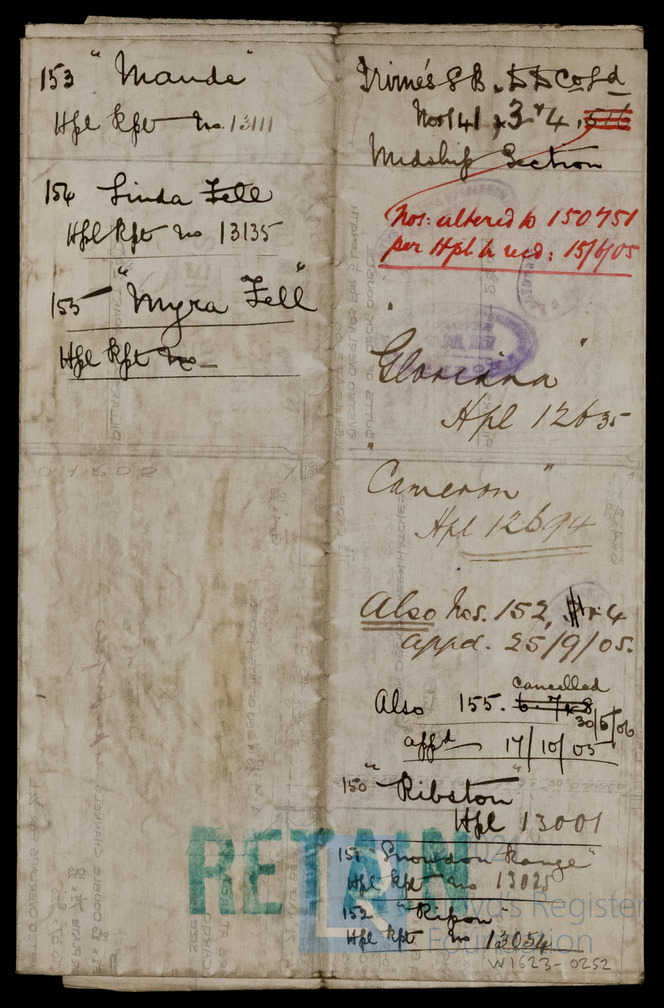 153 "Maude"
Hpl Rpt No. 13111
154 Linda Fell
Hpl Rpt no 13135
155 "Myra Fell"
Hpl Rpt No
Irvine's S B. & D D Co Ld
Nos 141, 3 & 4,
Midship Section
Nos: altered to 150 & 151
per Hpl lr recd: 15/6/05
"Gloriana"
Hpl 12635
"Cameron"
Hpl 12694
Also Nos. 152, 3 & 4
appd. 25/9/05.
cancelled
Also 155. 6. 7 & 8
30/5/06
appd 17/10/05
150 "Ribston"
Hpl 13001
RETAIN
151 "Snowdon Range"
Hpl Rpt no 13025
152 "Ripon"
Hpl Rpt no 13054
Lloyd's Register
Foundation
W1623-0252